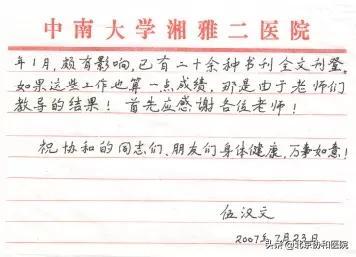 中南大学湘雅二医院
年1月,颇有影响,已有二十余种书刊全文刊登。
如果这些工作也算一点成绩,那是由于老师们
教导的结果！首先应感谢各位老师！
祝协和的同志们、朋友们身体健康,万事如意！
伍汉文
2007年7月23日
头条@北京协和医院